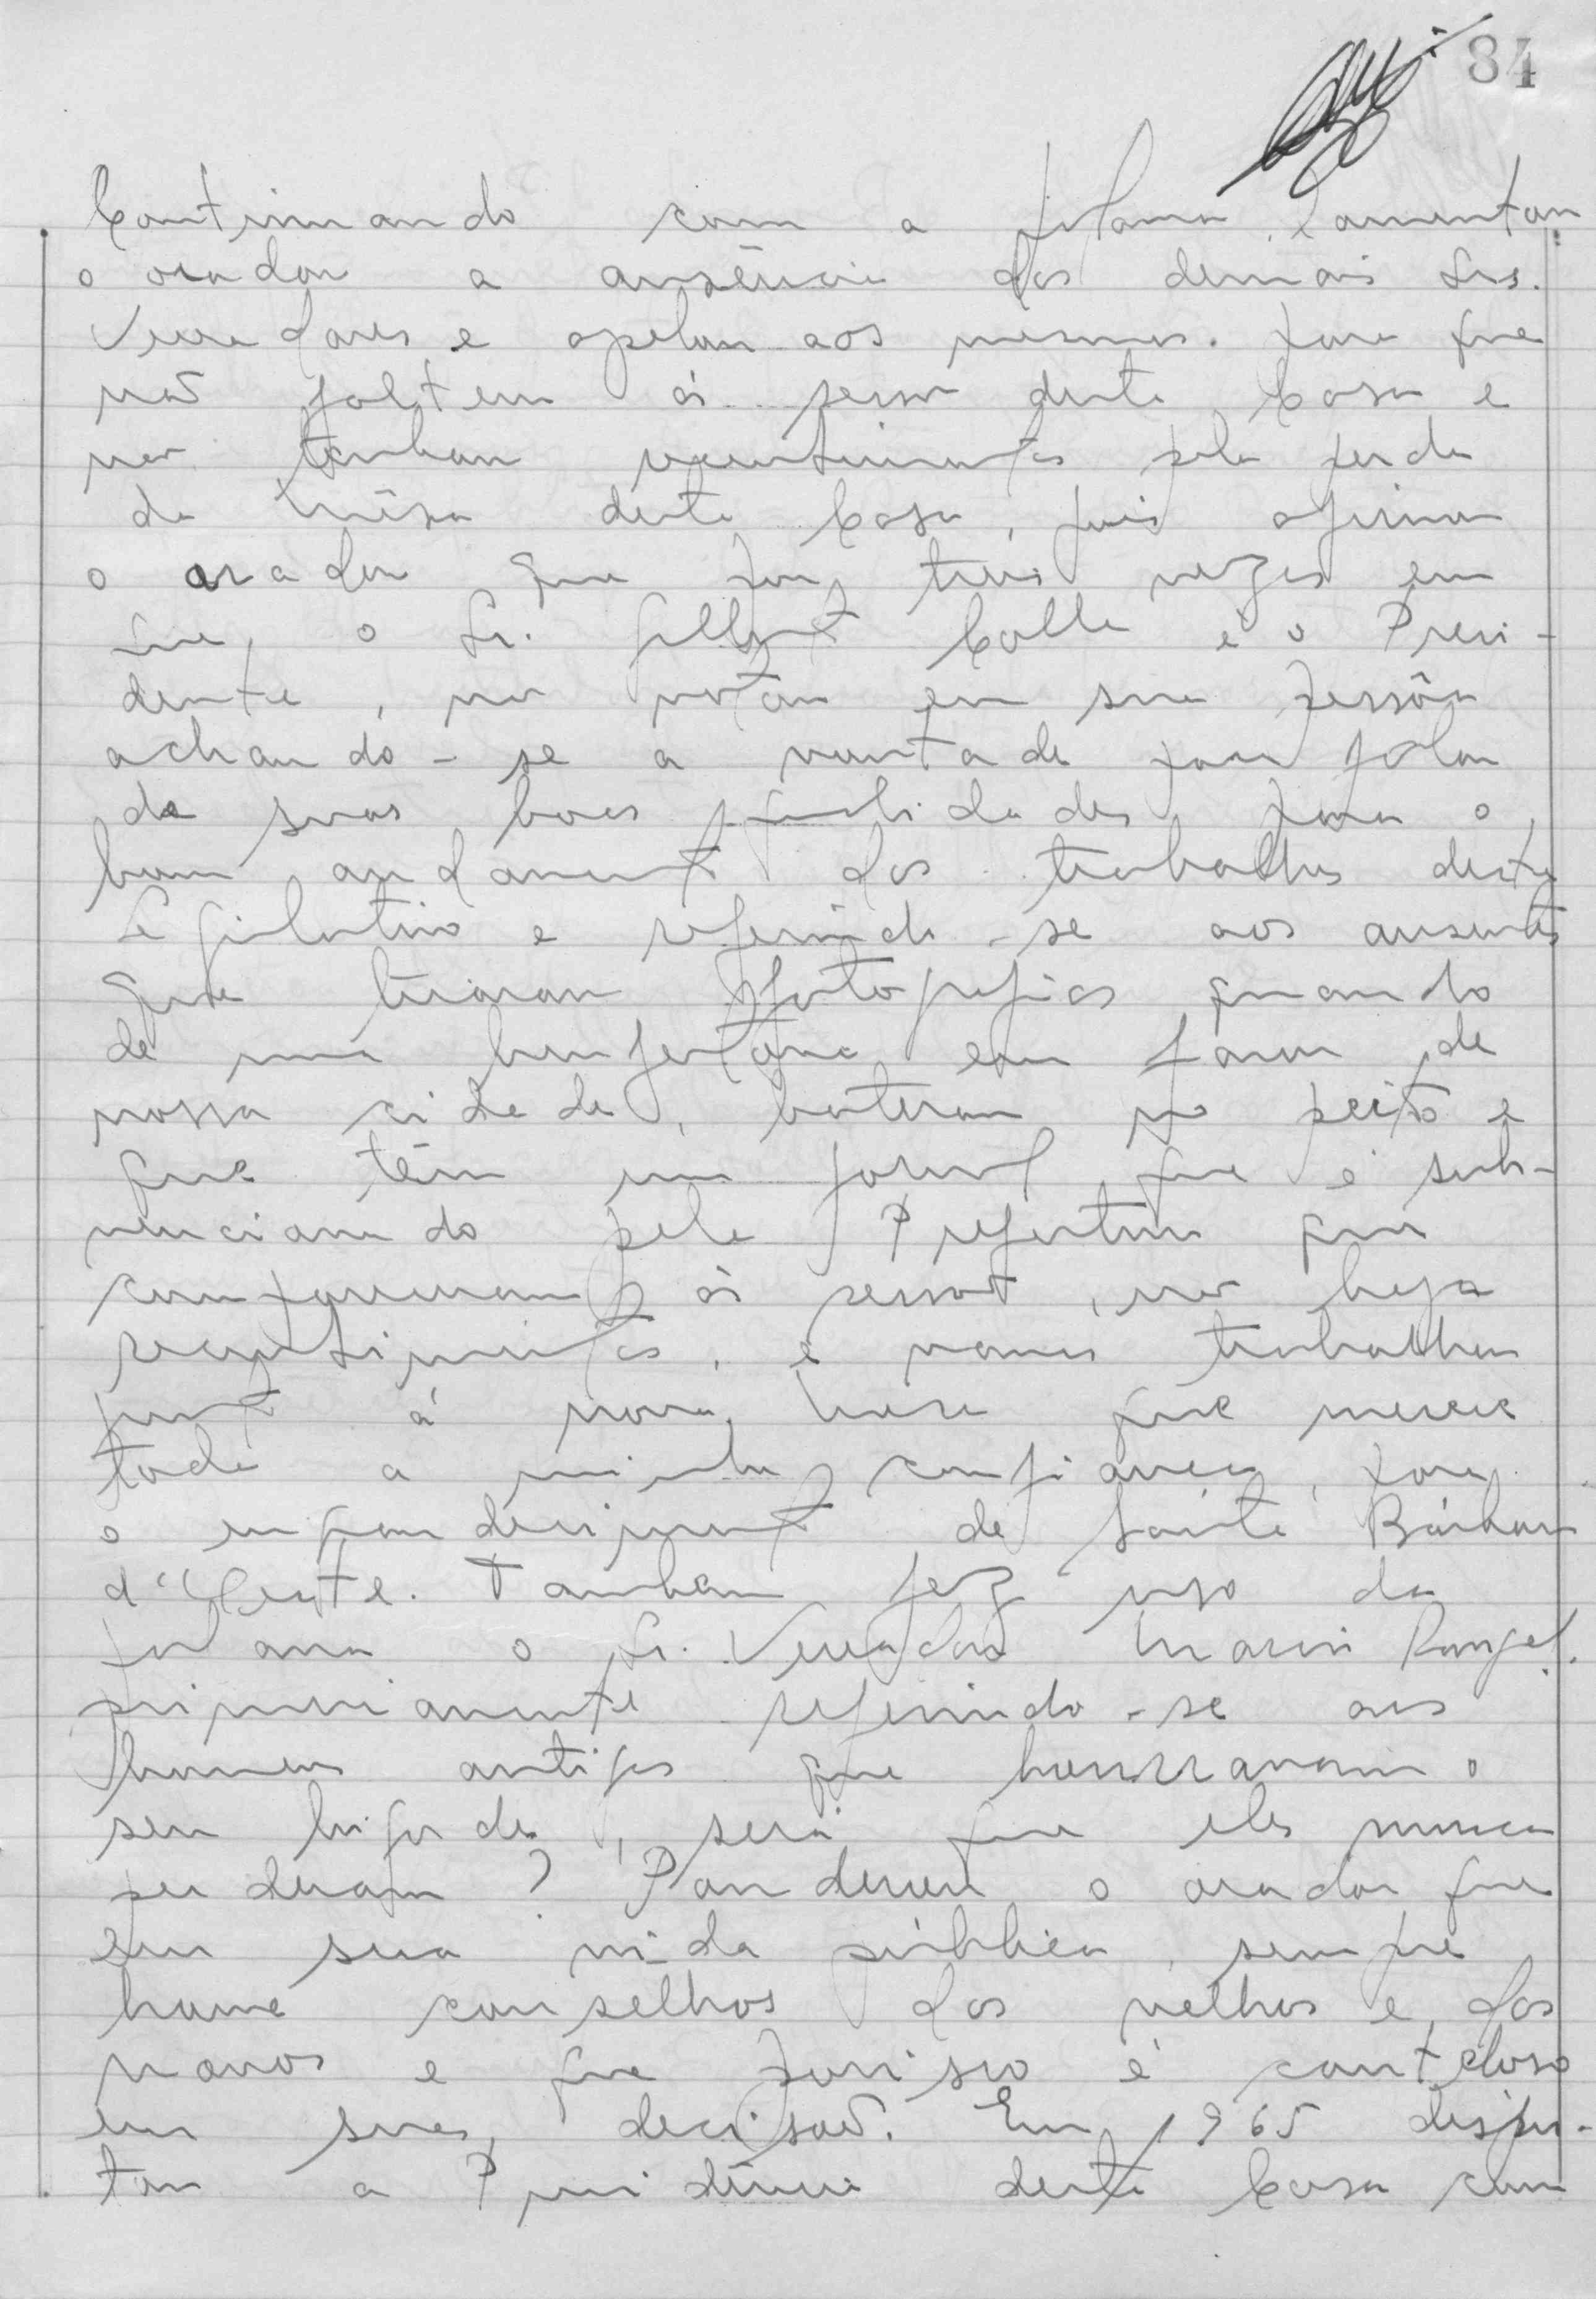 34
Continuando com a palavra, lamentou
o orador a ausência dos demais Srs.
Vereadores e apelou aos mesmos. para que
não faltem ás sessões desta Casa e
não tenham ressentimentos pela perda
da mêsa desta Casa, pois afirma
o orador que por três vezes em
que, o Sr. Calla é o Presi-
dente, não votou em sua pessôa
achando-se a vontade para falar
de suas boas qualidades para o
bom andamento dos trabalhos deste
Legislativo e referindo-se aos ausentes
que tiraram fotografias quando
de uma benfeitoria em favor de
nossa cidade, bateram no peito e
que têm um jornal que é sub-
vencionado pela Prefeitura que
compareçam ás sessões, não haja
ressentimentos, e vamos trabalhar
junto á nova mesa que merece
toda a minha confiança, para
o engrandecimento de Santa Bárbara
d'Oeste. Tambem fez uso da
palavra o Sr. Vereador Mario Rangel.
primeiramente referindo-se aos
homens antigos que honrravam o
seu bigode, será que eles nunca
perderam? Ponderou o orador que
em sua vida pública, sempre
houve conselhos dos velhos e dos
novos e que por isso é cauteloso
em suas decisões. Em 1965 dispu-
tou a Presidência desta Casa com